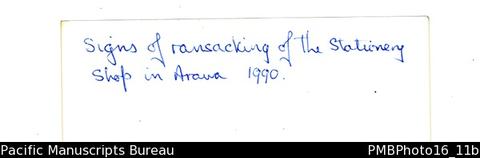 Signs of ransacking of the Stationery
Shop in Arawa 1990.
Pacific Manuscripts Bureau PMBPhoto16_11b